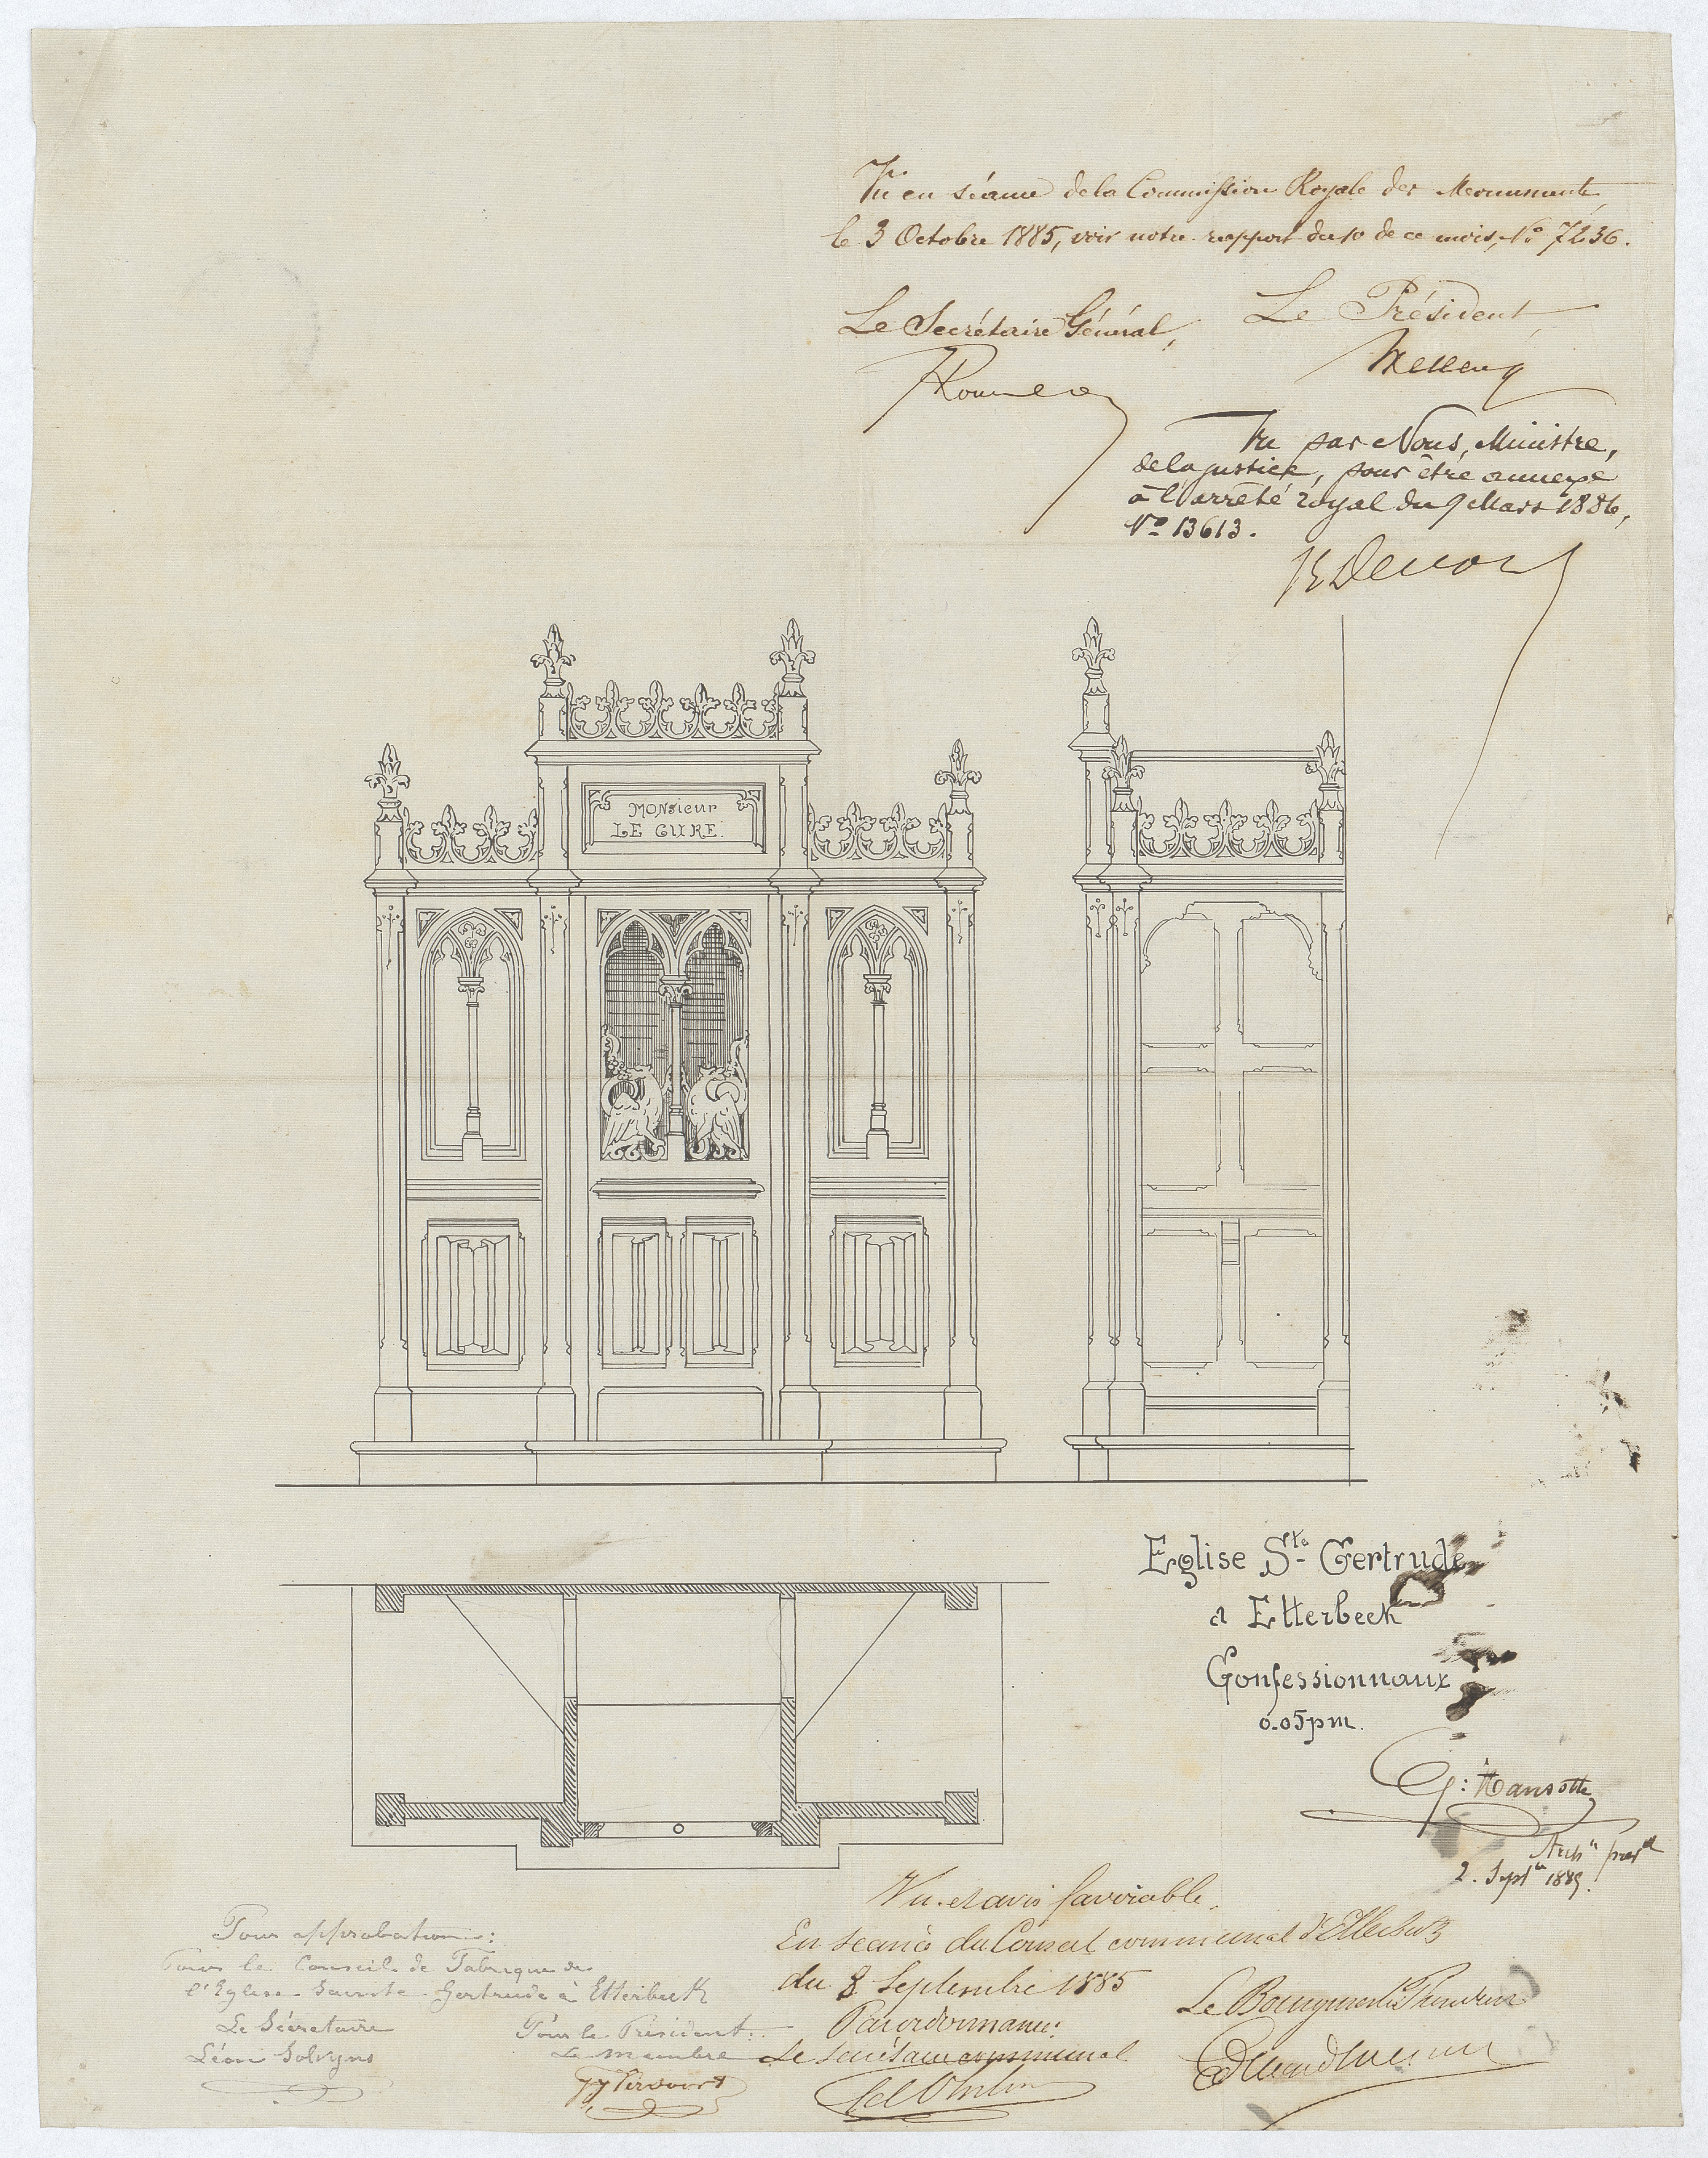 Vu en séance de la Commission Royale des Monuments,
le 3 Octobre 1885, voir notre rapport du 10 de ce mois, No 7236.
Le Secrétaire Général,
Le Président,
Wellens
Vu par Nous, Ministre,
de la justice, pour être annexé
à l'arrêté royal du 9 Mars 1886,
No 13613.
MONSIEUR
LE CURE.
Eglise Ste Gertrude
a Etterbeek
Confessionnaux
0.05 pm.
G: Hansotte
Archte proval
2. Septbre 1885.
Vu et avis favorable.
En séance du Conseil communal d'Etterbeek
du 8 Septembre 1885
Par ordonnance:
Le Secrétaire communal
Le Bourgmestre Président
Pour approbation:
Pour le Conseil de Fabrique de
l'Eglise Sainte Gertrude à Etterbeek
Le Sécretaire
Léon Solvyns
Pour le Président:
Le membre